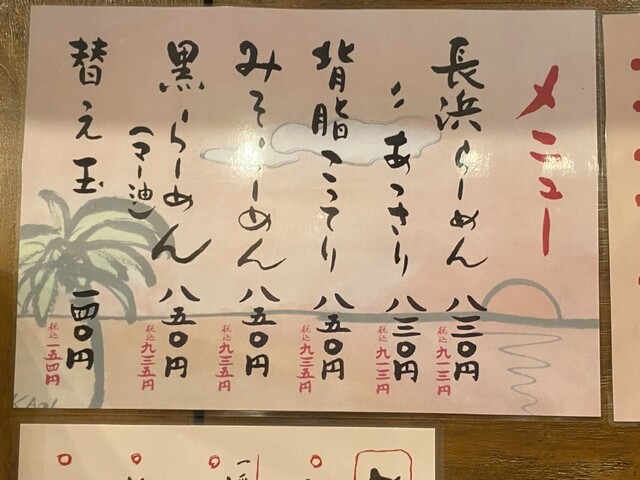 メニュー
長浜らーめん 八三〇円
税込 九一三円
〃 あっさり 八三〇円
税込 九一三円
背脂こってり 八五〇円
税込 九三五円
みそらーめん 八五〇円
税込 九三五円
黒らーめん 八五〇円
(マー油)
税込 九三五円
替え玉 一四〇円
税込 一五四円
KAOL